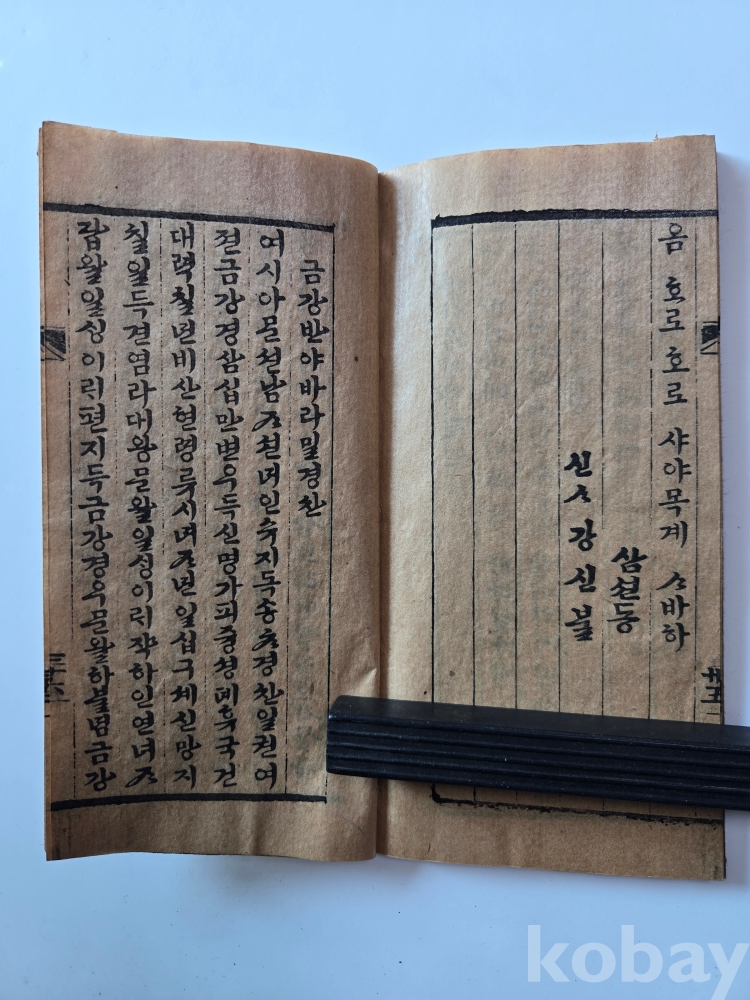 옴 호로호로 샤야목계 ᄉᆞ바하
삼쳔동
신ᄉᆞ강신블
卄五
금강반야바라밀경찬
여시아문션남ᄌᆞ션녀인슈지독송ᄎᆞ경찬일권여
젼금강경삼십만변우득신명가피즁셩뎨휴국건
대력칠년비산현령류시녀ᄌᆞ년일십구셰신망지
칠일득견염라대왕문왈일싱이ᄅᆡ쟉하인연녀ᄌᆞ
답왈일싱이ᄅᆡ편지득금강경우문왈하블념금강
kobay